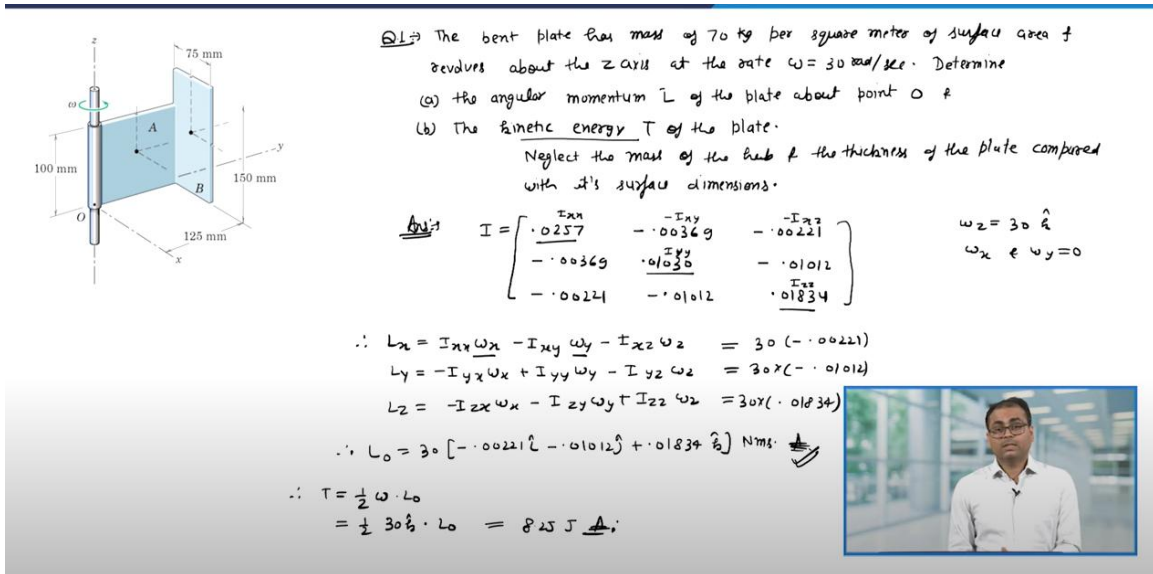 Q1:→ The bent plate has mass of 70 kg per square meter of surface area &
revolves about the z axis at the rate ω = 30 rad/sec. Determine
(a) the angular momentum L of the plate about point O &
(b) The kinetic energy T of the plate.
Neglect the mass of the hub & the thickness of the plate compared
with it's surface dimensions.
z
75 mm
ω
A
y
100 mm
150 mm
B
O
125 mm
x
Ans:→ I = [ Ixx .0257 -Ixy -.00369 -Ixz -.00221
-.00369 Iyy .01030 -.01012
-.00221 -.01012 Izz .01834 ]
ωz = 30 k̂
ωx & ωy = 0
∴ Lx = Ixx ωx - Ixy ωy - Ixz ωz = 30 (-.00221)
Ly = -Iyx ωx + Iyy ωy - Iyz ωz = 30x(-.01012)
Lz = -Izx ωx - Izy ωy + Izz ωz = 30x(.01834)
∴ Lo = 30 [-.00221 î - .01012 ĵ + .01834 k̂] Nms. A
∴ T = ½ ω · Lo
= ½ 30 k̂ · Lo = 8.25 J A.